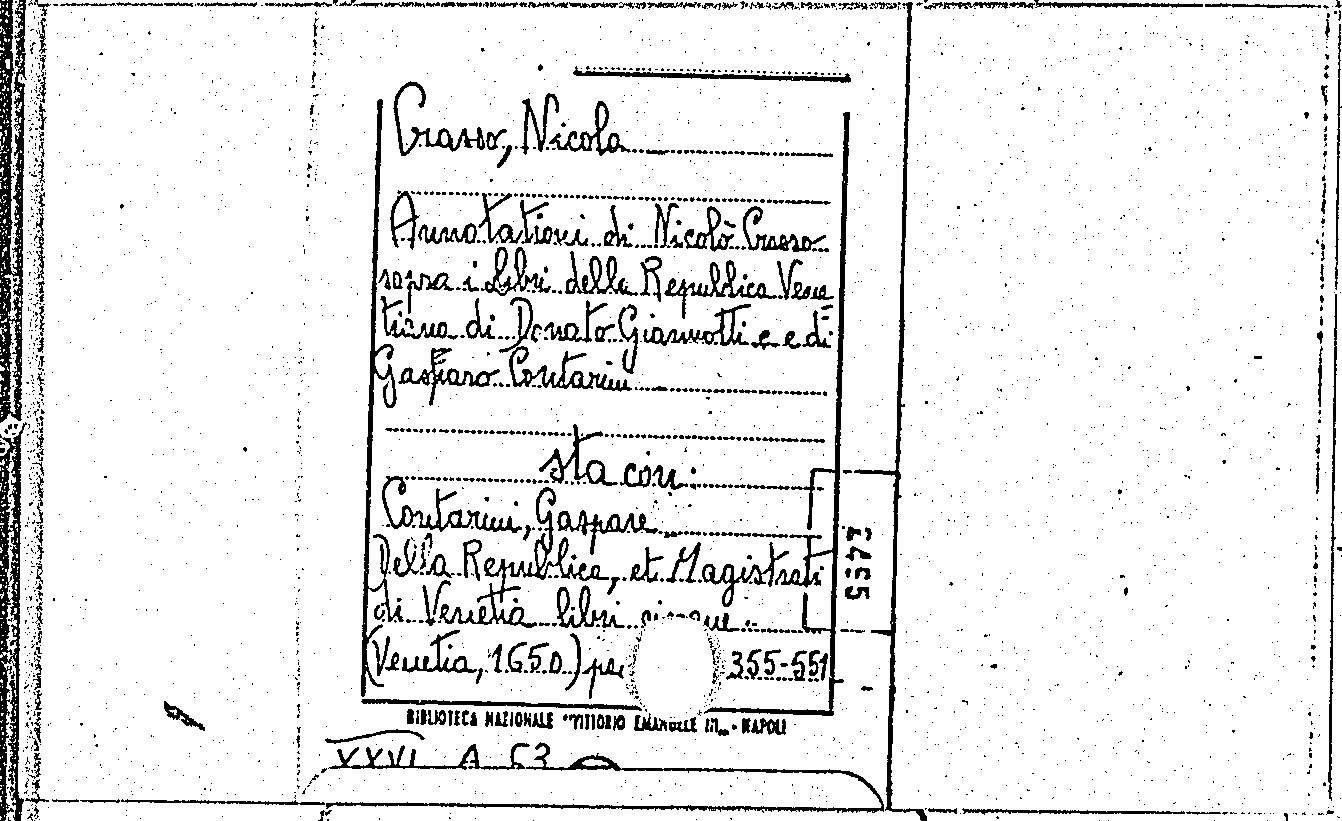 Crasso, Nicola
Annotationi di Nicolò Crasso
sopra i libri della Republica Vene
tiana di Donato Giannotti e e di
Gasparo Contarini
sta con:
Contarini, Gaspare
Della Republica, et Magistrati
di Venetia libri cinque.
(Venetia, 1650) 355-551
BIBLIOTECA NAZIONALE "VITTORIO EMANUELE III" - NAPOLI
XXVI A 63